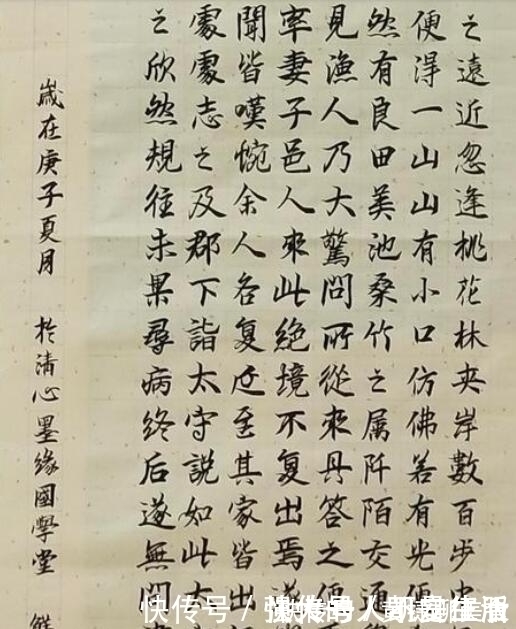 之遠近忽逢桃花林夹岸數百步中
便淂一山山有小口仿佛若有光便
然有良田美池桑竹之属阡陌交通
見漁人乃大驚問所從來具答之便
率妻子邑人來此絶境不复出焉遂
聞皆嘆惋余人各复延至其家皆出
處處志之及郡下詣太守説如此太
之欣然規往未果尋病终后遂無問
嵗在庚子夏月 於清心墨緣國學堂
快传号